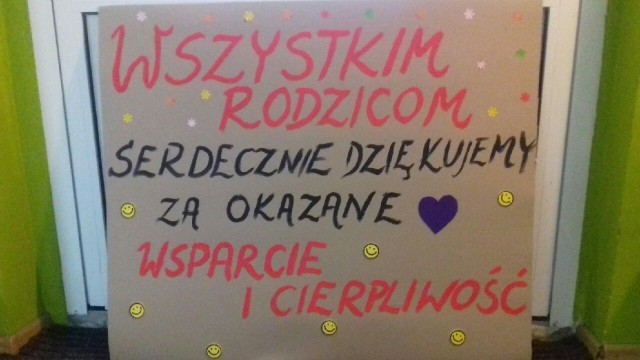 WSZYSTKIM
RODZICOM
SERDECZNIE DZIĘKUJEMY
ZA OKAZANE
WSPARCIE
I CIERPLIWOŚĆ